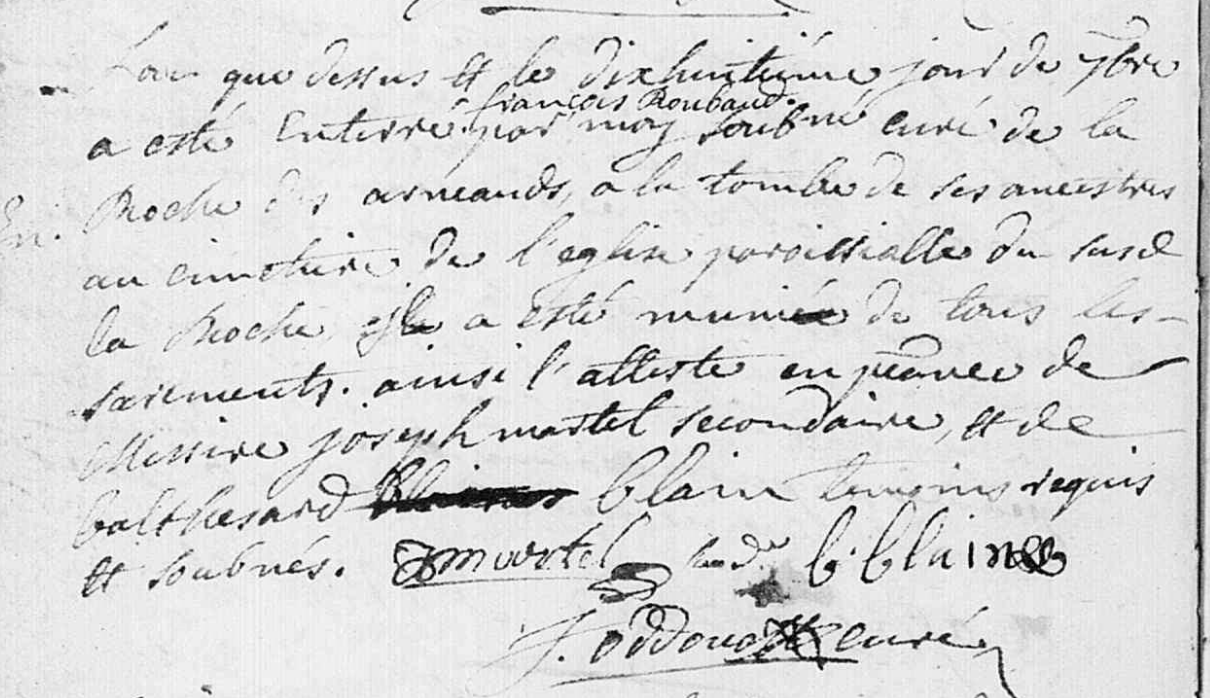 L'an que dessus et le dixhuitieme jour de 7bre
françois Roubaud.
a esté enterré par moy soubné curé de la
Roche des arneauds, a la tombe de ses ancestres
au cimetiere de l'eglise paroissialle du susd
la Roche, il a esté muni de tous les
sacrements. ainsi l'atteste en pñce de
Messire joseph martel secondaire, et de
balthesard blain temoins requis
et soubnés. J martel secd.re b blain
J. oddou curé